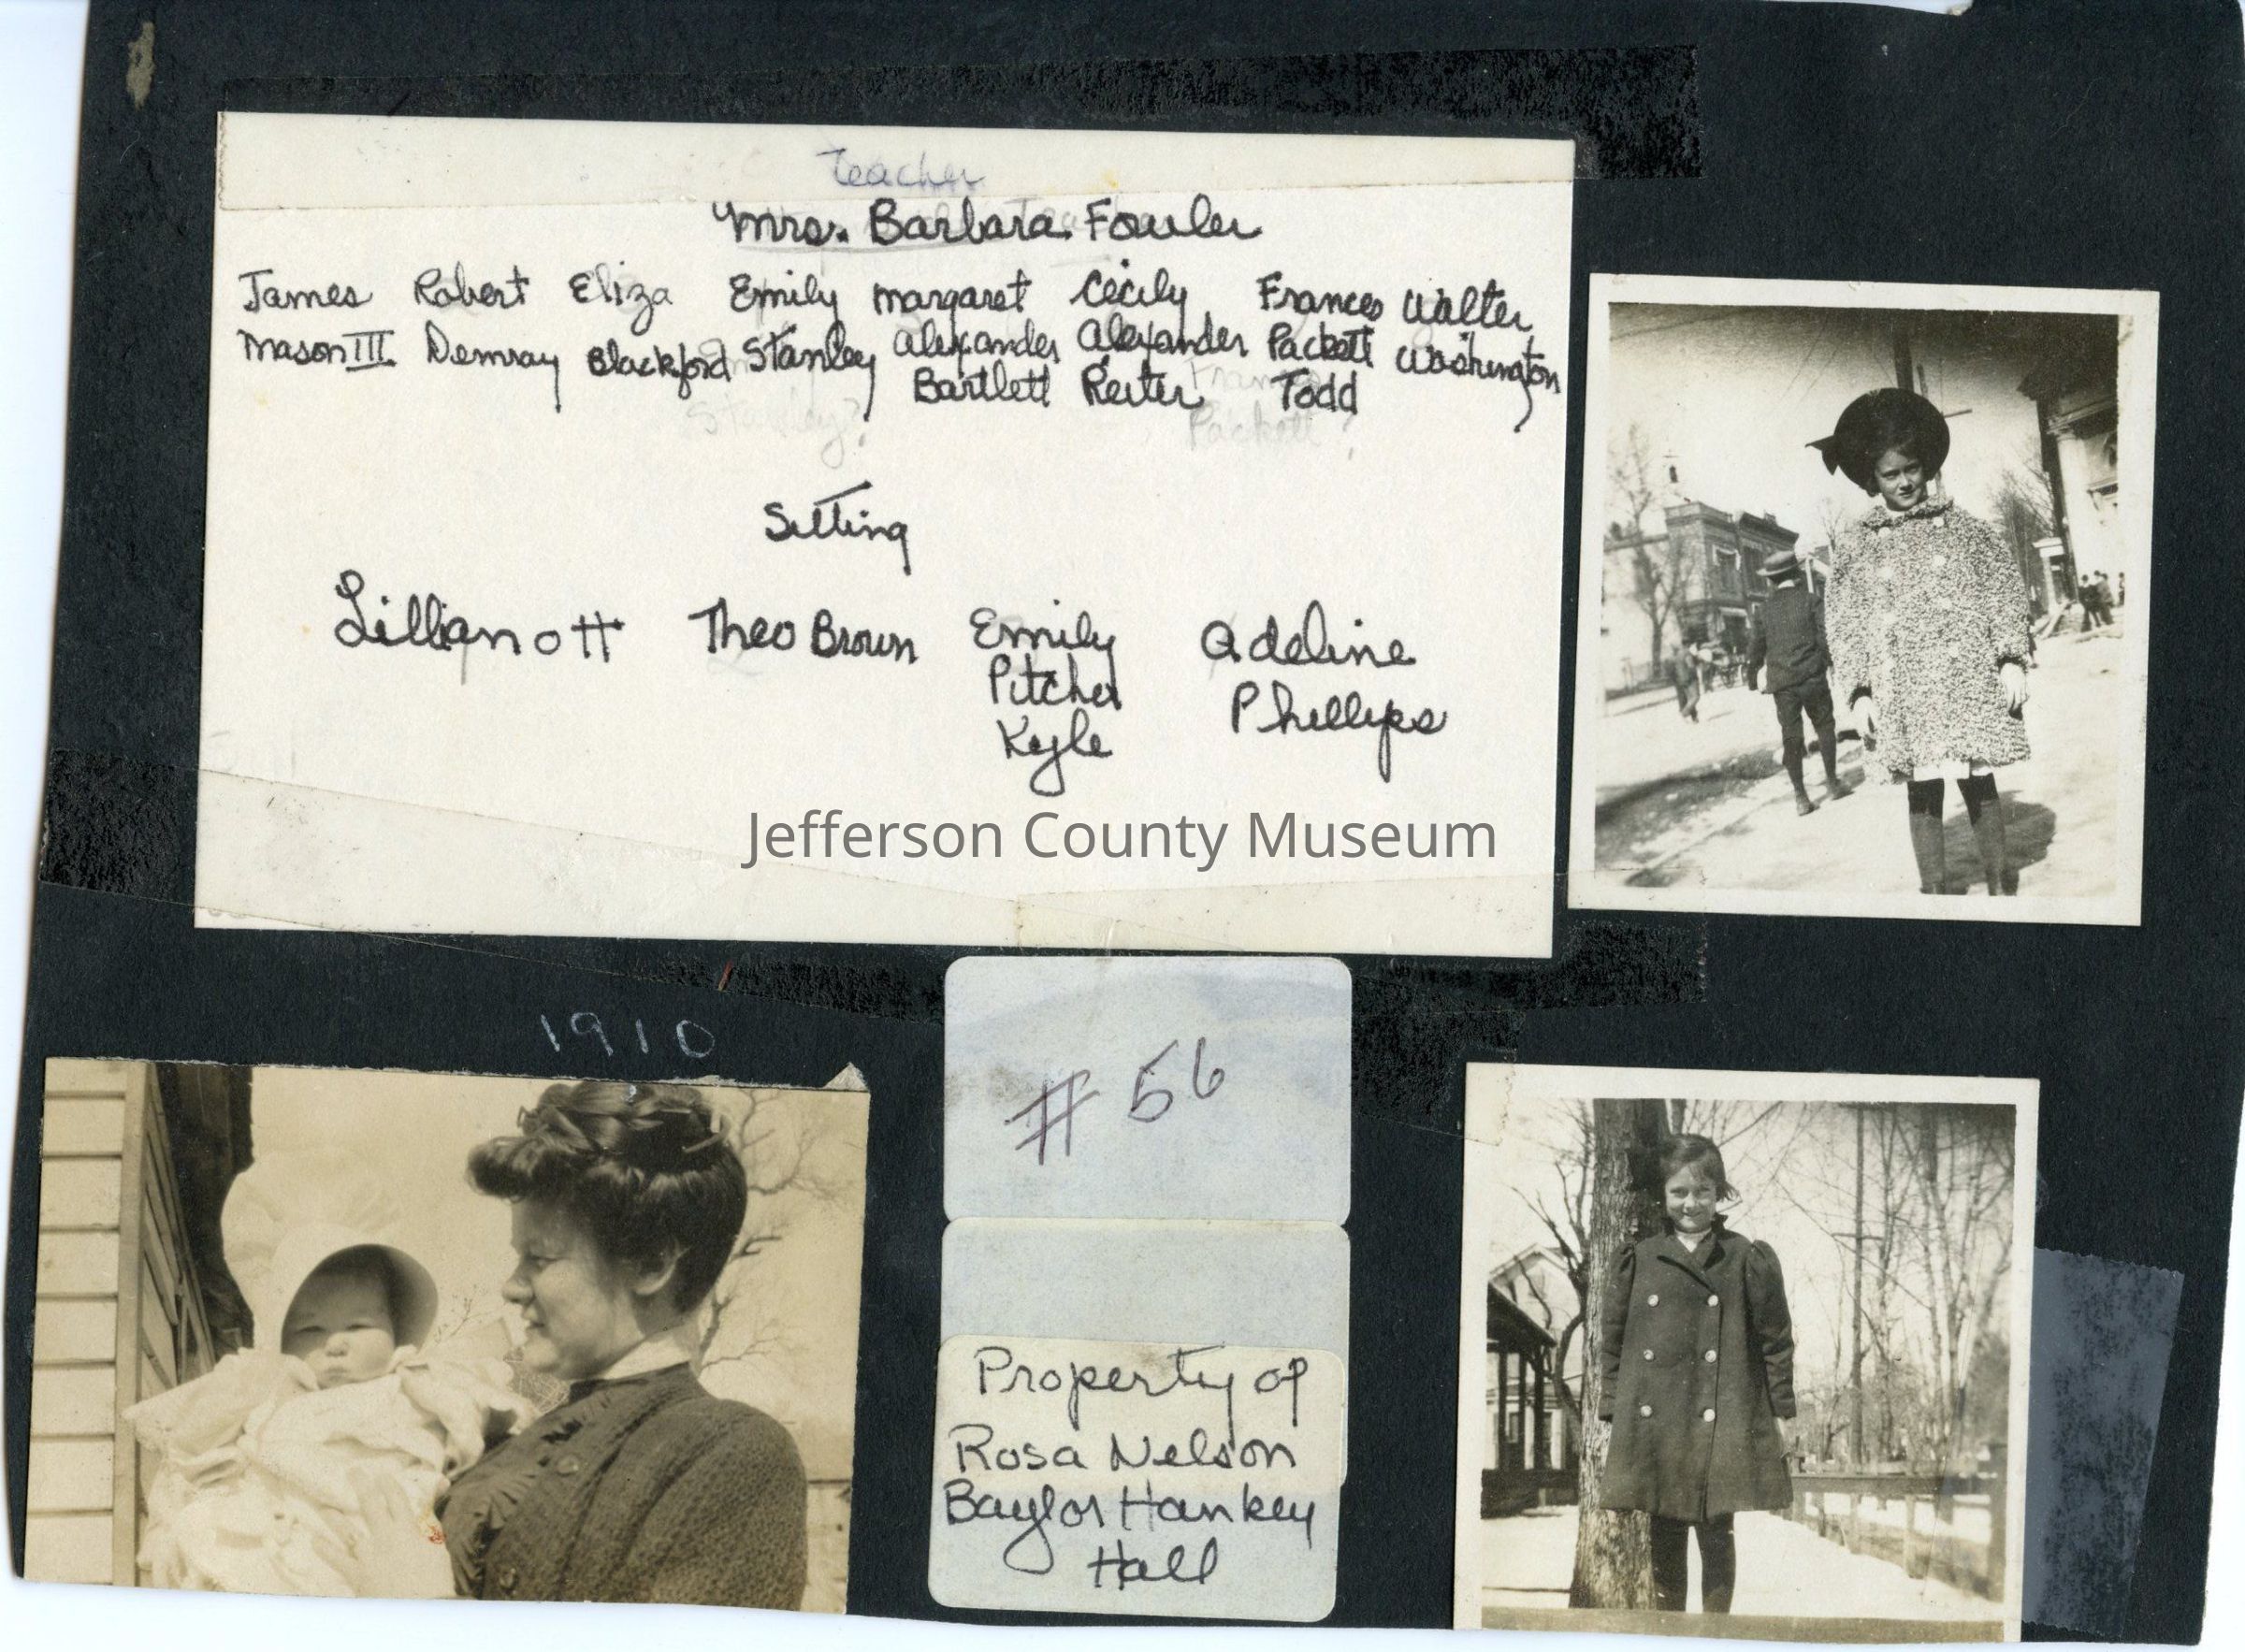 Teacher
Mrs. Barbara Fowler
James Robert Eliza Emily Margaret Cecily Frances Walter
Mason III Demray Blackford Stanley Alexander Alexander Packett Washington
Bartlett Reiter Todd
Stanley?
Packett
Sitting
Lillian Ott Theo Brown Emily Adeline
Pitcher Phillips
Kyle
Jefferson County Museum
1910
# 56
Property of
Rosa Nelson
Baylor Hankey
Hall